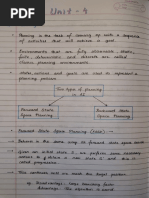 Unit - 4
Planning is the task of coming up with a sequence
of activities that will achieve a goal.
Environments that are fully observable, static,
finite, deterministic and discrete are called
classic planning environments.
States, actions and goals are used to represent a
planning problem.
Two types of planning
in AI
Forward State
Space Planning
Backward State
Space Planning
Forward State Space Planning (FSSP)
Behaves in the same way as forward state-space
Given an initial state S, we perform some necessary
actions to
state
This continues until we reach the target position.
Disadvantage: Large branching factor
Advantage: The algorithm is sound.